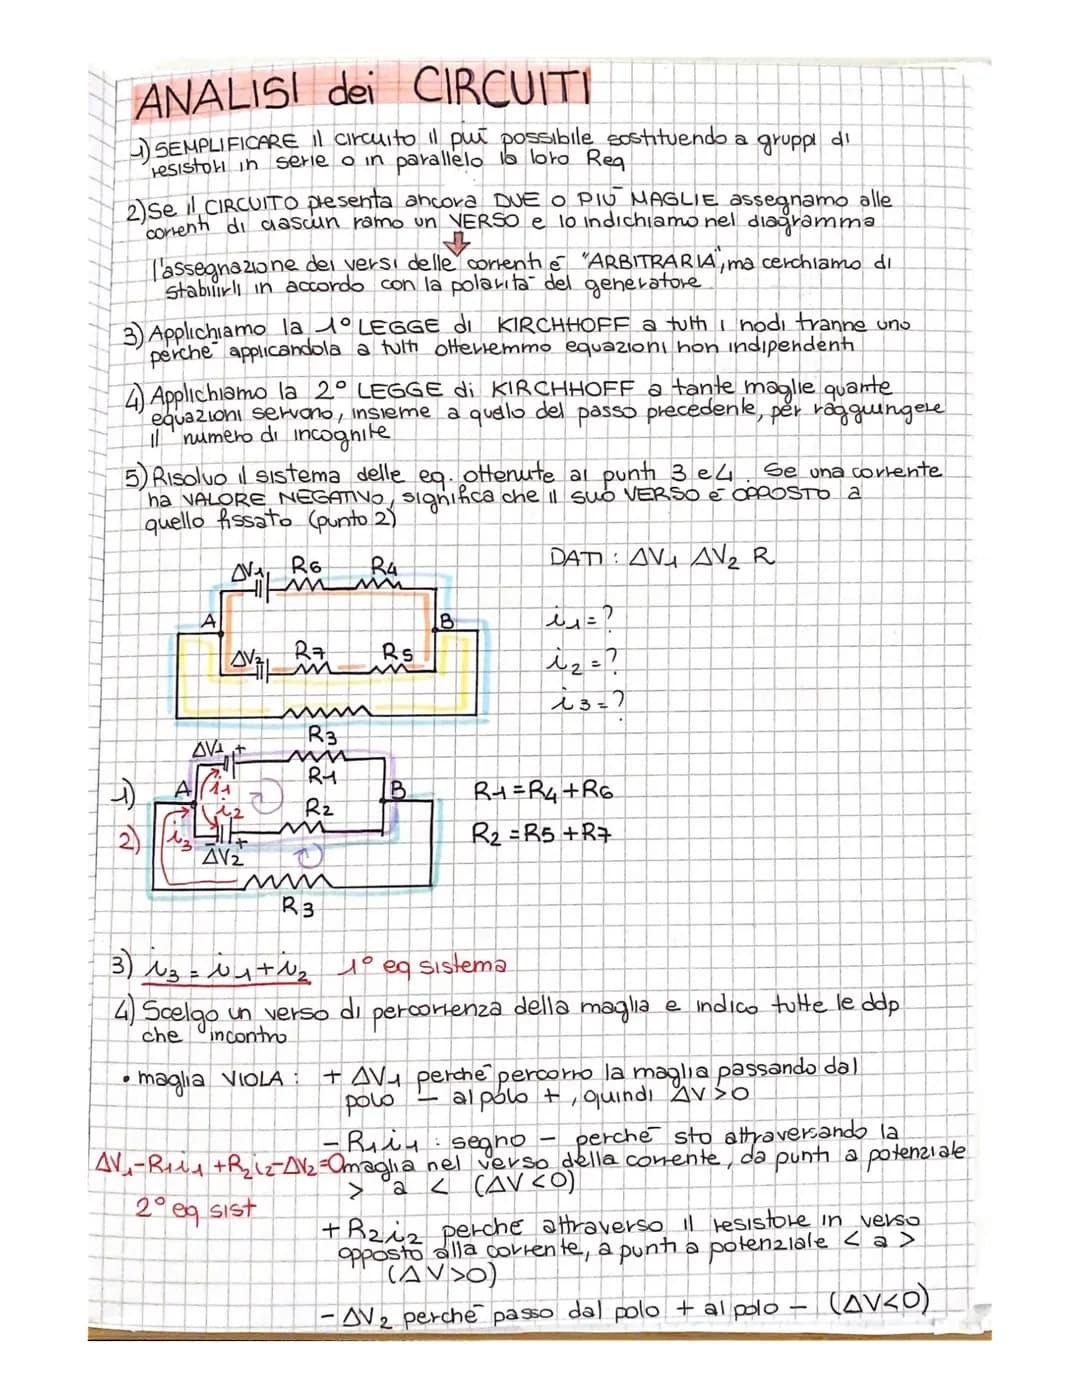 ANALISI dei CIRCUITI
1) SEMPLIFICARE il circuito il più possibile sostituendo a gruppi di
resistori in serie o in parallelo la loro Req
2) Se il CIRCUITO presenta ancora DUE O PIÙ MAGLIE assegnamo alle
correnti di ciascun ramo un VERSO e lo indichiamo nel diagramma
l'assegnazione dei versi delle correnti é "ARBITRARIA", ma cerchiamo di
stabilirli in accordo con la polarità del generatore
3) Applichiamo la 1° LEGGE di KIRCHHOFF a tutti i nodi tranne uno
perché applicandola a tutti otterremmo equazioni non indipendenti
4) Applichiamo la 2° LEGGE di KIRCHHOFF a tante maglie quante
equazioni servono, insieme a quelo del passo precedente, per ragguingere
il numero di incognite
5) Risolvo il sistema delle eq. ottenute ai punti 3 e 4. Se una corrente
ha VALORE NEGATIVO, significa che il suo VERSO é OPPOSTO a
quello fissato (punto 2)
ΔV1 R6 R4
DATI : ΔV1 ΔV2 R
A B
i1=?
ΔV2 R7 R5
i2=?
i3=?
R3
ΔV1 +
R1
1) A i1 B
R1=R4+R6
i2 R2
2) i3 - +
R2=R5+R7
ΔV2
R3
3) i3 = i1+i2 1° eq sistema
4) Scelgo un verso di percorrenza della maglia e indico tutte le ddp
che incontro
• maglia VIOLA : + ΔV1 perché percorro la maglia passando dal
polo - al polo +, quindi ΔV>0
- R1i1 : segno - perché sto attraversando la
ΔV1-R1i1+R2i2-ΔV2=0 maglia nel verso della corrente, da punti a potenziale
> a < (ΔV<0)
2° eq sist
+ R2i2 perché attraverso il resistore in verso
opposto alla corrente, a punti a potenziale < a >
(ΔV>0)
- ΔV2 perché passo dal polo + al polo - (ΔV<0)